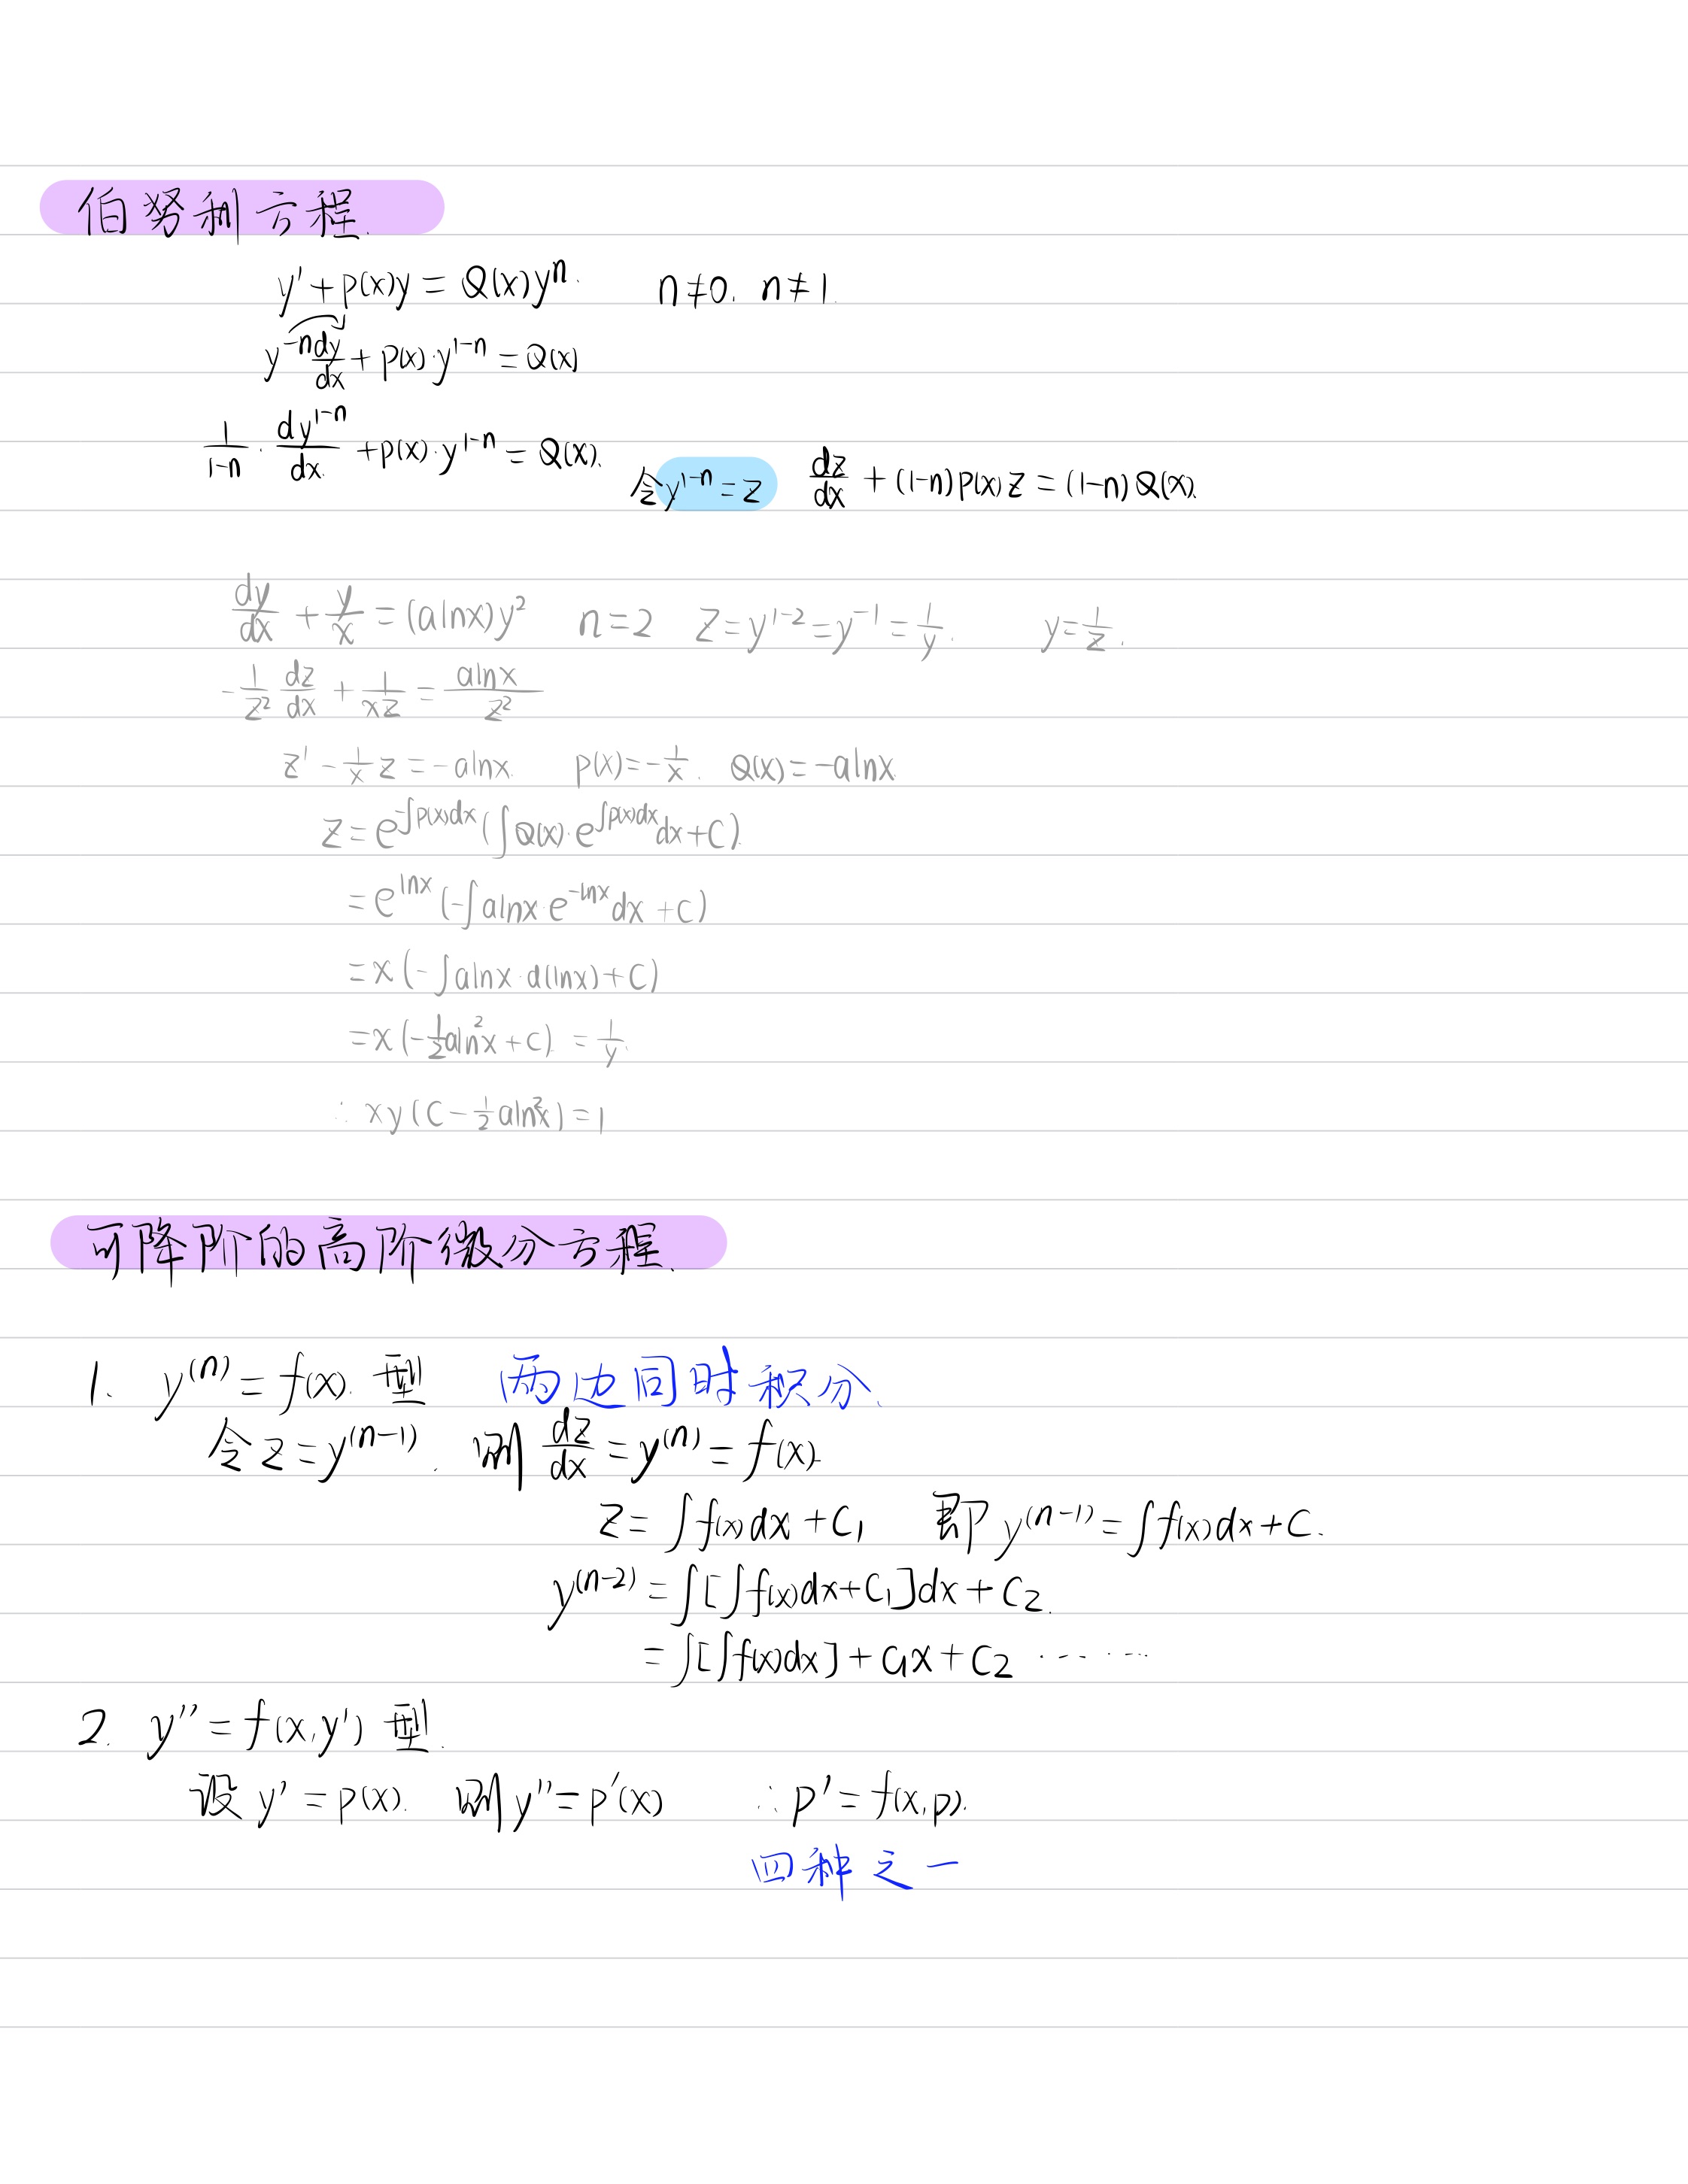 伯努利方程.
y' + p(x)y = Q(x)yⁿ. n≠0. n≠1.
y⁻ⁿ dy/dx + p(x)·y¹⁻ⁿ = Q(x)
1/(1-n) · dy¹⁻ⁿ/dx + p(x)·y¹⁻ⁿ = Q(x).
令 y¹⁻ⁿ = z dz/dx + (1-n)p(x)z = (1-n)Q(x).
dy/dx + y/x = (alnx)y² n=2 z=y¹⁻²=y⁻¹=1/y. y=1/z.
-1/z² dz/dx + 1/(xz) = alnx/z²
z' - 1/x z = -alnx. p(x)=-1/x. Q(x)=-alnx.
z = e^(-∫p(x)dx) (∫Q(x)·e^(∫p(x)dx)dx+C).
= e^(lnx) (-∫alnx·e^(-lnx)dx+C)
= x(-∫alnx·d(lnx)+C)
= x(-1/2aln²x+C) = 1/y.
∴ xy(C-1/2aln²x)=1
可降阶的高阶微分方程.
1. y⁽ⁿ⁾ = f(x). 型 两边同时积分.
令 z = y⁽ⁿ⁻¹⁾. 则 dz/dx = y⁽ⁿ⁾ = f(x).
z = ∫f(x)dx + C₁ 即 y⁽ⁿ⁻¹⁾ = ∫f(x)dx + C.
y⁽ⁿ⁻²⁾ = ∫[∫f(x)dx+C₁]dx + C₂.
= ∫[∫f(x)dx] + C₁x + C₂ ······
2. y'' = f(x,y') 型.
设 y' = p(x). 则 y'' = p'(x) ∴ p' = f(x,p).
四种之一